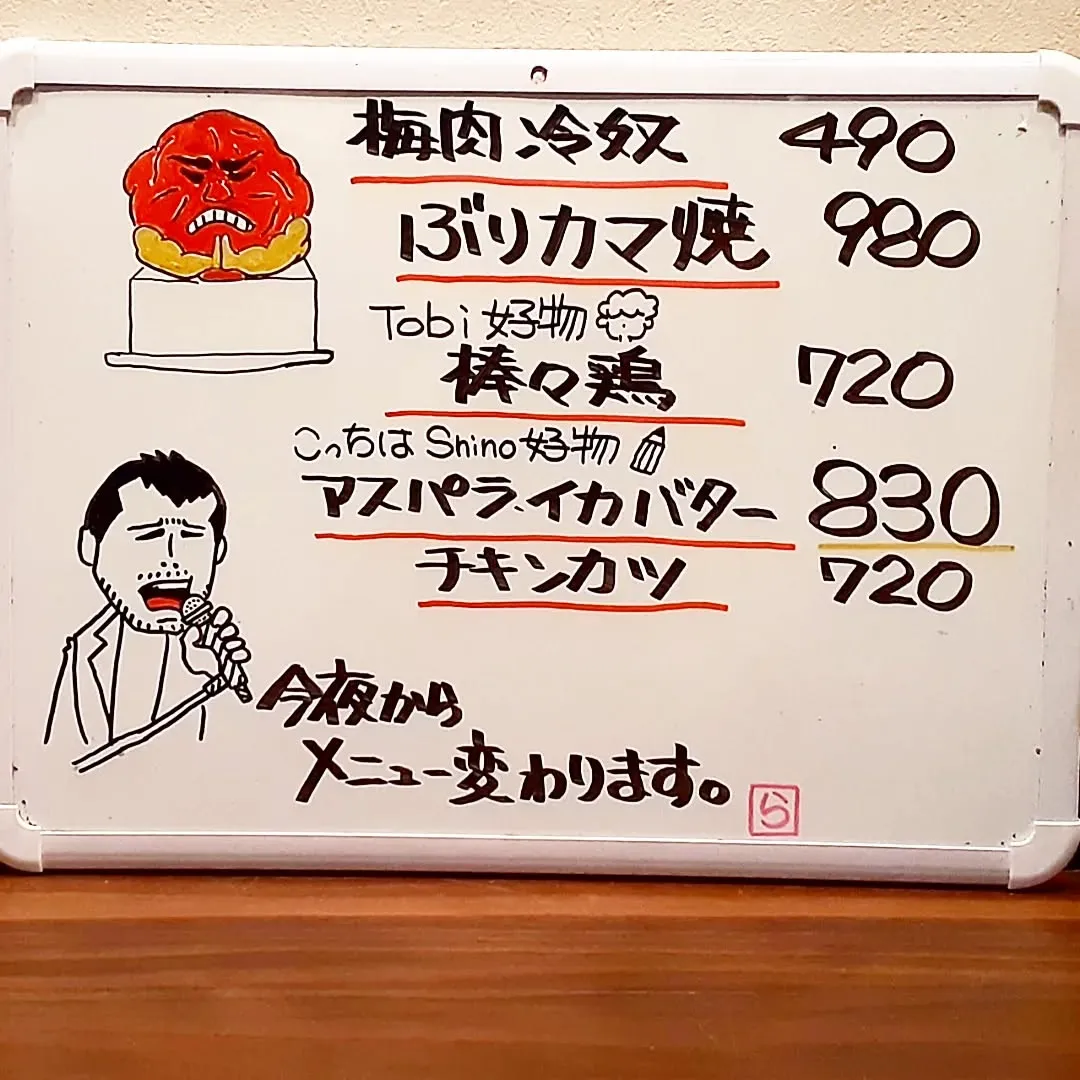 梅肉冷奴 490
ぶりカマ焼 980
Tobi好物
棒々鶏 720
こっちはShino好物
アスパライカバター 830
チキンカツ 720
今夜から
メニュー変わります。
ら